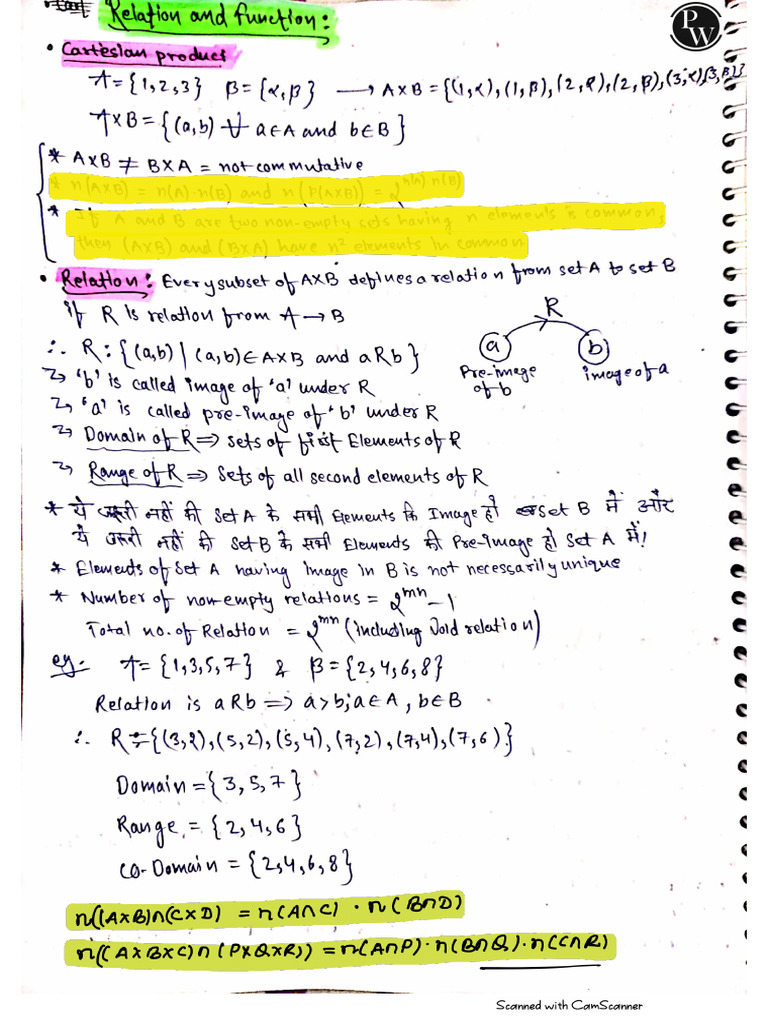 Relation and function:
PW
• Cartesian product
A={1,2,3} B={α,β} ⟶ A×B={(1,α),(1,β),(2,α),(2,β),(3,α),(3,β)}
A×B={(a,b) ∀ a∈A and b∈B}
* A×B ≠ B×A = not commutative
* n(A×B) = n(A)·n(B) and n(P(A×B)) = 2^n(A) n(B)
* If A and B are two non-empty sets having n elements in common,
then (A×B) and (B×A) have n² elements in common
• Relation: Every subset of A×B defines a relation from set A to set B
if R is relation from A → B
R
∴ R:{(a,b) | (a,b)∈A×B and aRb}
a b
↳ 'b' is called image of 'a' under R
Pre-image of b
image of a
↳ 'a' is called pre-image of 'b' under R
↳ Domain of R ⇒ sets of first Elements of R
↳ Range of R ⇒ Sets of all second elements of R
* ये जरूरी नहीं की Set A के सभी Elements कि Image हो Set B में और
ये जरूरी नहीं की Set B के सभी Elements की Pre-Image हो Set A में!
* Elements of Set A having image in B is not necessarily unique
* Number of non-empty relations = 2^mn - 1
Total no. of Relation = 2^mn (including Void relation)
eg.- A={1,3,5,7} & B={2,4,6,8}
Relation is aRb ⇒ a>b; a∈A, b∈B
∴ R={(3,2),(5,2),(5,4),(7,2),(7,4),(7,6)}
Domain={3,5,7}
Range = {2,4,6}
co-Domain = {2,4,6,8}
n((A×B)∩(C×D)) = n(A∩C) · n(B∩D)
n((A×B×C)∩(P×Q×R)) = n(A∩P)·n(B∩Q)·n(C∩R)
Scanned with CamScanner